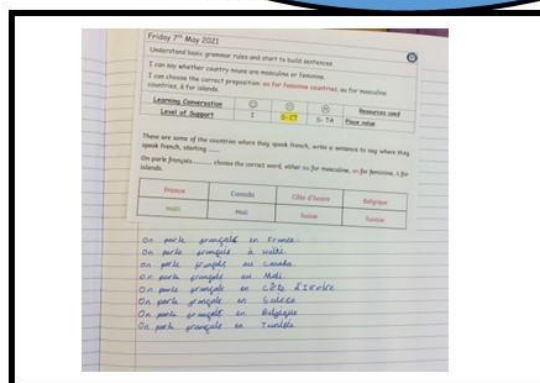 Friday 7th May 2021
Understand basic grammar rules and start to build sentences
I can say whether country nouns are masculine or feminine.
I can choose the correct preposition: en for feminine countries, au for masculine
countries, à for islands.
Learning Conversation Resources used
Level of Support I S-CT S-TA Place value
These are some of the countries where they speak French, write a sentence to say where they
speak French, starting
On parle français.......... choose the correct word, either au for masculine, en for feminine, à for
islands.
France Canada Côte d'Ivoire Belgique
Haiti Mali Suisse Tunisie
On parle français en France.
On parle français à Haiti
On parle français au Canada
On parle français au Mali
On parle français en Côte d'Ivoire
On parle français en Suisse
On parle français en Belgique
On parle français en Tunisie